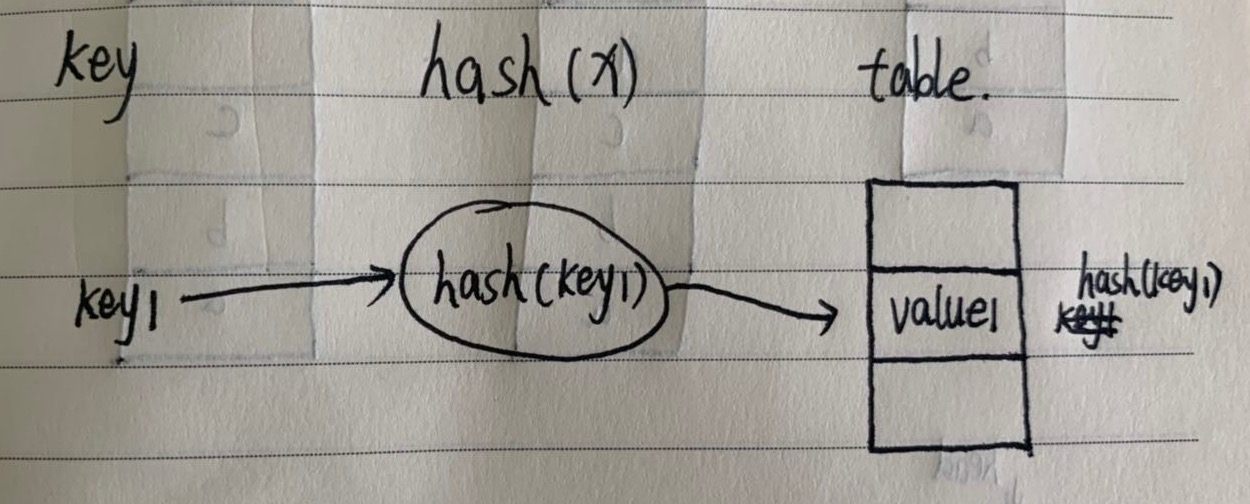 key hash(x) table.
key1 hash(key1) value1 hash(key1)